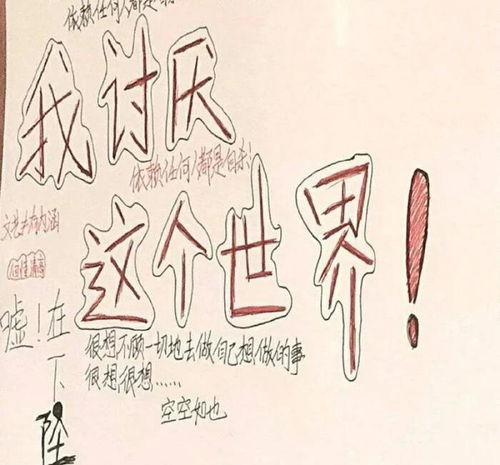 依赖任何人都是
我讨厌
依赖任何人都是自杀!
这个世界!
文艺
嘘!在下坠
很想不顾一切地去做自己想做的事
很想很想......
空空如也